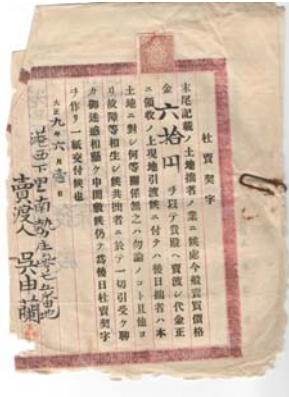 杜賣契字
末尾記載ノ土地拙者ノ業ニ候處今般賣買價格
金六拾円ヲ以テ貴殿ヘ賣渡シ代金正
ニ領收ノ上現地引渡候ニ付テハ後日拙者ハ本
土地ニ對シ何等關係無之ハ勿論ノコト且他ヨ
リ故障等相生シ候共拙者ニ於テ一切引受ケ聊
カ御迷惑相懸ケ申間敷候仍テ爲後日杜賣契字
ヲ作リ一紙交付候也
大正九年六月壹日
港西下里南勢庄
賣渡人 吳由蘭